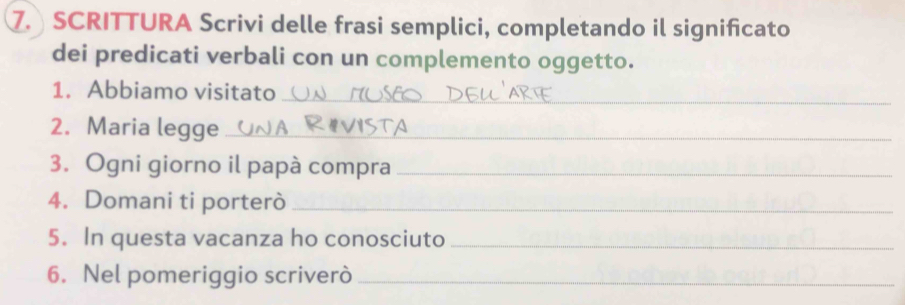 7. SCRITTURA Scrivi delle frasi semplici, completando il significato
dei predicati verbali con un complemento oggetto.
1. Abbiamo visitato UN MUSEO DELL'ARTE
2. Maria legge UNA RIVISTA
3. Ogni giorno il papà compra
4. Domani ti porterò
5. In questa vacanza ho conosciuto
6. Nel pomeriggio scriverò